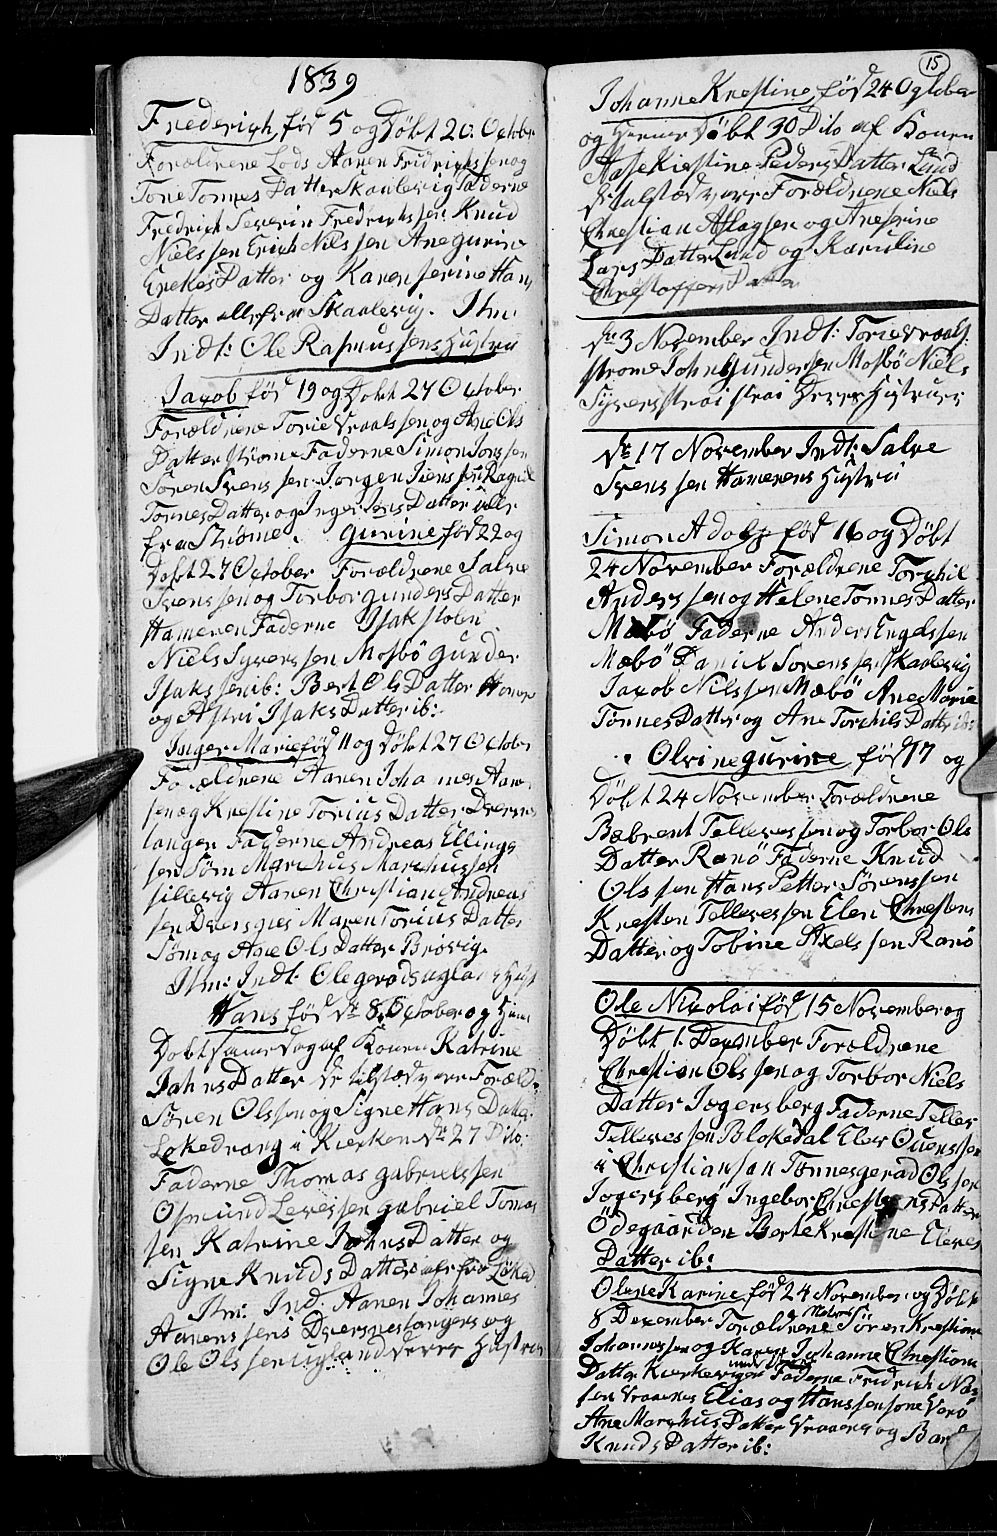 1839
Frederich, föd 5 og Döbt 20. October
Forældrene Lods Aanen Fridrichssen og
Tone Tønnes Datter Skaalevig Faderne
Fredrich Severin Fredrichssen Knud
Nielssen Erich Nilssen Ane gurine
Enekes Datter og Karen serine Hans
Datter alle fra Skaalevig. Itm:
Indt: Ole Rasmussens Hustru
Jacob föd 19 og Döbt 27 October
Forældrene Torie Vraalssen og Ane Ols
Datter Strøme Faderne Simon Jonssen
Søren Svenssen Jørgen Jenssen Ragnil
Tønnes Datter og Inger Jens Datter alle
fra Strøme. Gurine föd 22 og
Döbt 27 October Forældrene Salve
Svenssen og Torbor gunders Datter
Hameren Faderne Isak stolen
Niels Syverssen Mosbö gunder
Isakssen ib: Bert Ols Datter
og Astri Isaks Datter ib:
Inger Marie föd 11 og Döbt 27 October
Forældrene Aanen Johannes Aanen
sen og Krestine Torius Datter Dversnes
tangen Faderne Andreas Ellings
sen Søm Marchus Marchussen
sillevig Aanen Christian Andreas
sen Dversnes Maren Torius Datter
Søm og Ane Ols Datter Brövig
Itm: Indt: Ole gerods Hust
Hans föd d: 8 October og Hiem
Döbt samme Dag af Konen Katrine
Jahns Datter de tilstædvere Foræld:
Sören Olssen og Signe Hans Datter
Lokedrang i Kierken d: 27 Dito:
Faderne Thomas gabrielssen
Osmund Levessen gabriel Tomas
sen Katrine Jahns Datter og
Signe Knuds Datter
Itm: Ind Aanen Johannes
Aanenssens Dversnestangens og
Ole Olssen ugland deres Hustruer
15
Johanne Krestine, föd 24 October
og Hiemme Döbt 30 Dito af Konen
Aase Kirstine Peders Datter Lund
de tilstædvere Forældrene Niels
Chrestian Aslagsen og Aneserine
Lars Datter Lund og Karoline
Chrestoffers Datter
d: 3 November Indt: Torie Vraals
strøme John Gundersen Mosbö Niels
Syvers strai strai Deres Hustruer
d: 17 November Indt: Salve
Svenssen Hamerens Hustru
Simon Adolph föd 16 og Döbt
24 November Forældrene Torchil
Anderssen og Helene Tønnes Datter
Mæbö Faderne Anders Engelssen
Mæbö Daniel Sørenssen Skaalevig
Jacob Nilssen Mæbö Ane Marie
Tønnes Datter og Ane Torchils Datter ib:
Olvine gurine föd 17 og
Döbt 24 November Forældrene
Babrent Tellevessen og Torbor Ols
Datter Ranö Faderne Knud
Olssen Hans Petter Sörenssen
Kresten Tellevessen Elen Chrestens
Datter og Tobine Axelssen Ranö
Ole Nicolai föd 15 November og
Döbt 1. December Forældrene
Chrestian Olssen og Torbor Niels
Datter Jogersberg Faderne Tellev
Tellevessen Blokedal Elev Ouenssen
i Christiansan Tønnes gerad Olssen
Jogersberg Ingebor Chrestens Datter
Ödegaarden Berte Krestine Eleves
Datter ib:
Olene Karine föd 24 November og Döbt
8 December Forældrene Matros Sören Krestian
Johannessen og Karen Johanne Chrestians
Datter Kierkevigen Faderne Fridrich
sen Vraaenes Elias og Hanssen sone Varö
Ane Marchus Datter Vraaens og
Knuds Datter ib: